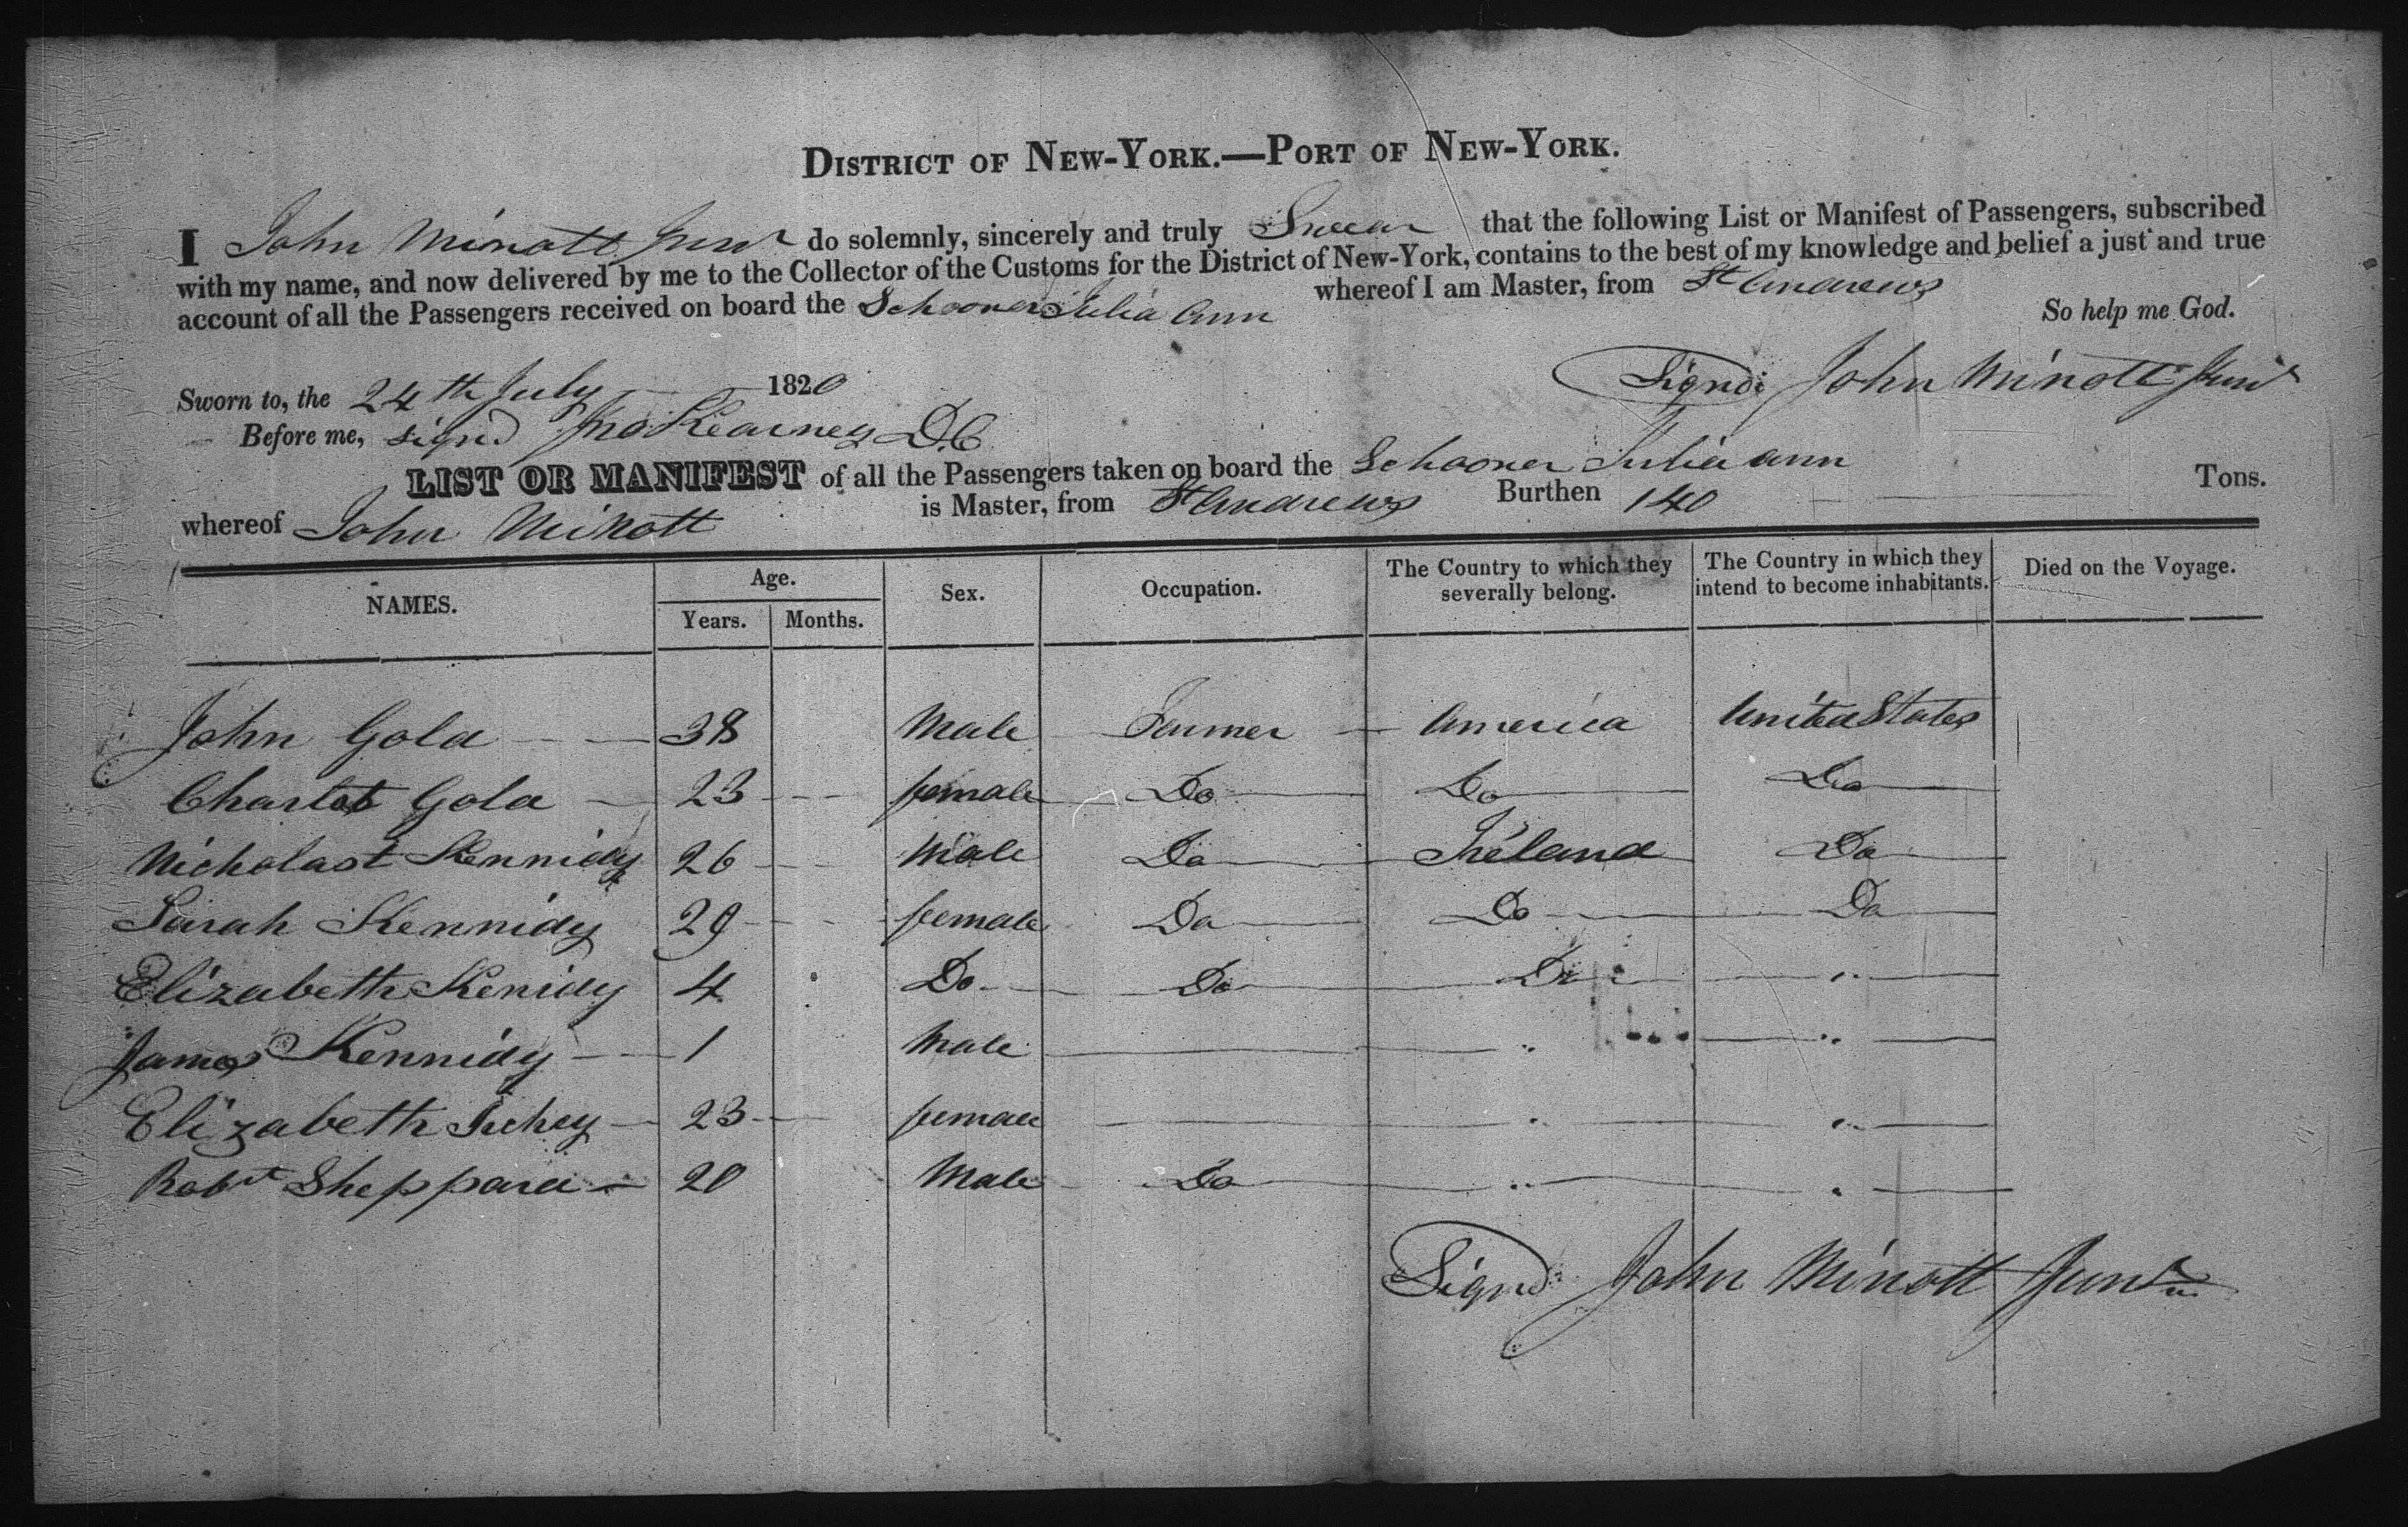 DISTRICT OF NEW-YORK.—PORT OF NEW-YORK.
I John Minott Junr do solemnly, sincerely and truly Swear that the following List or Manifest of Passengers, subscribed
with my name, and now delivered by me to the Collector of the Customs for the District of New-York, contains to the best of my knowledge and belief a just and true
account of all the Passengers received on board the Schooner Julia Ann whereof I am Master, from St Andrews
So help me God.
Sworn to, the 24th July 1820
Signd John Minott Junr
Before me, signd Jno Kearney D.C
LIST OR MANIFEST of all the Passengers taken on board the Schooner Julia ann
whereof John Minott is Master, from St Andrews Burthen 140 Tons.
NAMES. Age. Sex. Occupation. The Country to which they severally belong. The Country in which they intend to become inhabitants. Died on the Voyage.
Years. Months.
John Gold 38 Male Farmer America United States
Charlot Gold 23 female Do Do Do
Nicholast Kennidy 26 Male Do Ireland Do
Sarah Kennidy 29 female Do Do Do
Elizabeth Kenidy 4 Do Do Do "
James Kennidy 1 Male " "
Elizabeth 23 female " "
Robt Sheppard 20 Male Do " "
Signd John Minott Junr